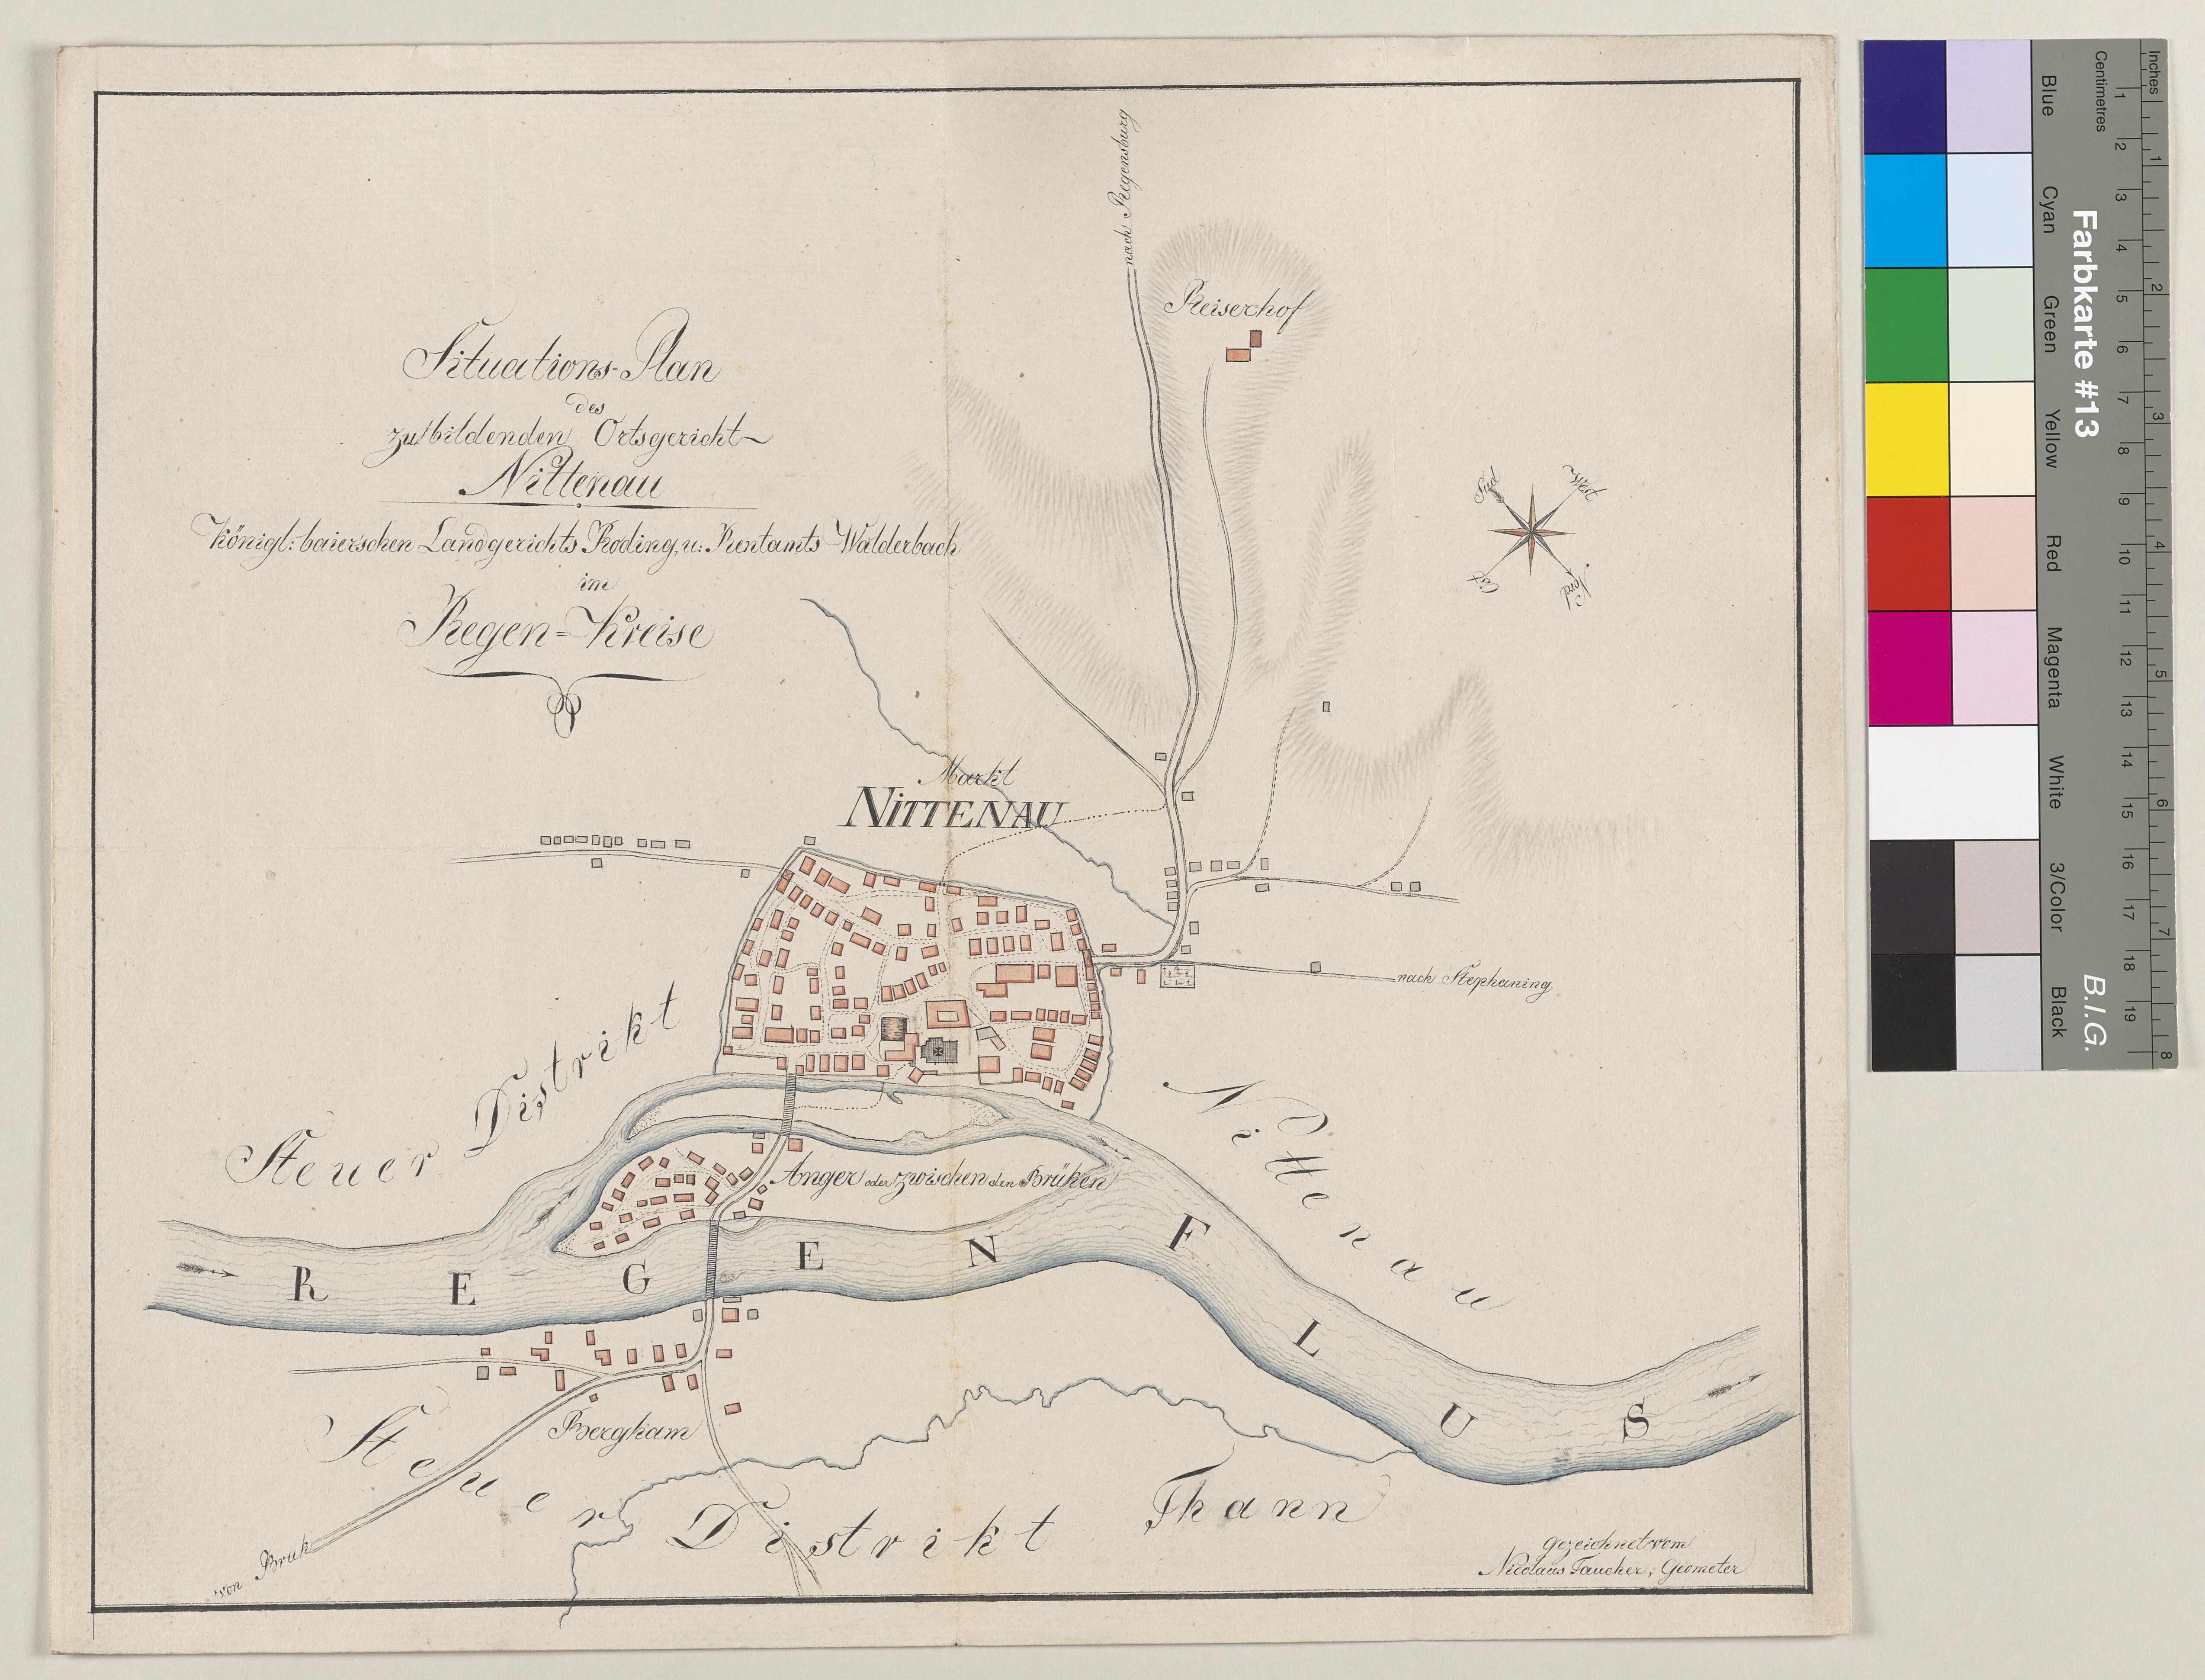 Situations-Plan
des
zu bildenden Ortsgericht
Nittenau
Königl: baierschen Landgerichts Roding, u: Rentamts Walderbach
im
Regen=Kreise
nach Regensburg
Reiserhof
Süd
West
Ost
Nord
Markt
NITTENAU
nach Stephaning
Steuer Distrikt Nittenau
Anger oder zwischen den Brüken
REGEN FLUS
Bergham
Steuer Distrikt Thann
von Bruk
Gezeichnet vom
Nicolaus Taucher, Geometer
Inches
1
2
3
4
5
6
7
8
Centimetres
1
2
3
4
5
6
7
8
9
10
11
12
13
14
15
16
17
18
19
Farbkarte #13
B.I.G.
Blue
Cyan
Green
Yellow
Red
Magenta
White
3/Color
Black